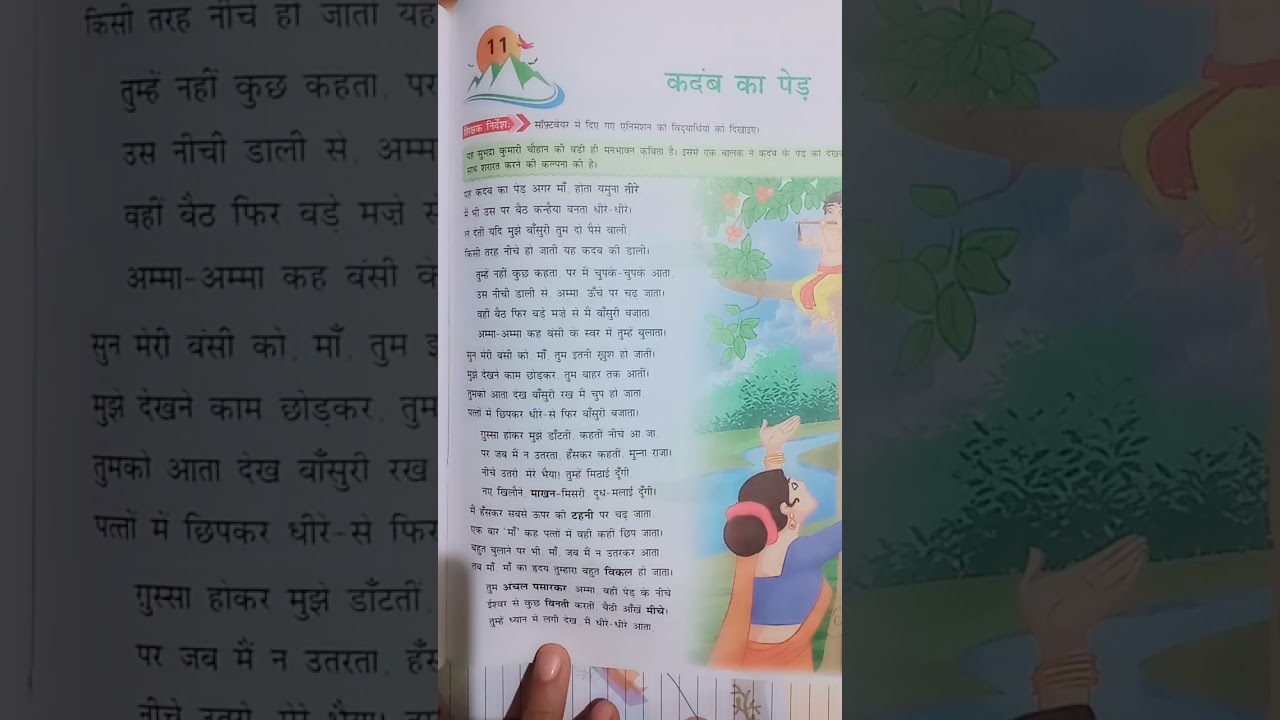 11
कदंब का पेड़
शिक्षक निर्देश: सॉफ़्टवेयर में दिए गए एनिमेशन को विद्यार्थियों को दिखाइए।
यह सुभद्रा कुमारी चौहान की बड़ी ही मनभावन कविता है। इसमें एक बालक ने कदंब के पेड़ को देखकर
साथ शरारत करने की कल्पना की है।
यह कदंब का पेड़ अगर माँ, होता यमुना तीरे,
मैं भी उस पर बैठ कन्हैया बनता धीरे-धीरे।
ले देतीं यदि मुझे बाँसुरी तुम दो पैसे वाली,
किसी तरह नीचे हो जाती यह कदंब की डाली।
तुम्हें नहीं कुछ कहता, पर मैं चुपके-चुपके आता,
उस नीची डाली से, अम्मा, ऊँचे पर चढ़ जाता।
वहीं बैठ फिर बड़े मज़े से मैं बाँसुरी बजाता,
अम्मा-अम्मा कह बंसी के स्वर में तुम्हें बुलाता।
सुन मेरी बंसी को, माँ, तुम इतनी ख़ुश हो जातीं।
मुझे देखने काम छोड़कर, तुम बाहर तक आतीं।
तुमको आता देख बाँसुरी रख मैं चुप हो जाता,
पत्तों में छिपकर धीरे-से फिर बाँसुरी बजाता।
ग़ुस्सा होकर मुझे डाँटतीं, कहतीं नीचे आ जा,
पर जब मैं न उतरता, हँसकर कहतीं, मुन्ना राजा।
नीचे उतरो, मेरे भैया! तुम्हें मिठाई दूँगी,
नए खिलौने, माखन-मिसरी, दूध-मलाई दूँगी।
मैं हँसकर सबसे ऊपर की टहनी पर चढ़ जाता,
एक बार 'माँ' कह पत्तों में वहीं कहीं छिप जाता।
बहुत बुलाने पर भी, माँ, जब मैं न उतरकर आता,
तब माँ, माँ का हृदय तुम्हारा बहुत विकल हो जाता।
तुम अंचल पसारकर, अम्मा, वहीं पेड़ के नीचे
ईश्वर से कुछ विनती करतीं, बैठी आँखें मीचे।
तुम्हें ध्यान में लगी देख, मैं धीरे-धीरे आता,